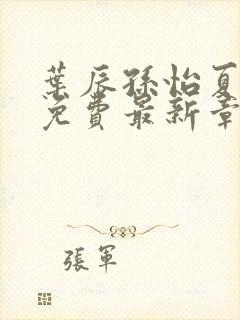 葉辰孫怡夏
免費最新章
張軍